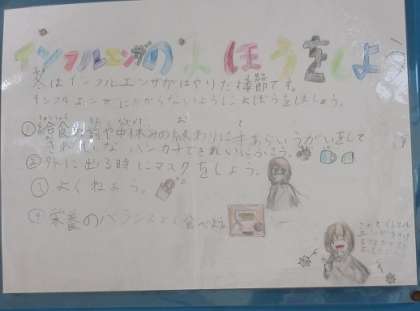 インフルエンザのよぼうをしよ
冬はインフルエンザがはやりだす季節です。
インフルエンザにかからないようによぼうをしましょう。
①給食の前や中休みの終わりに手あらいうがいをして
きれいなハンカチできれいにふこう
②外に出る時にマスクをしよう。
③よくねよう。
④栄養のバランスよく食べよう